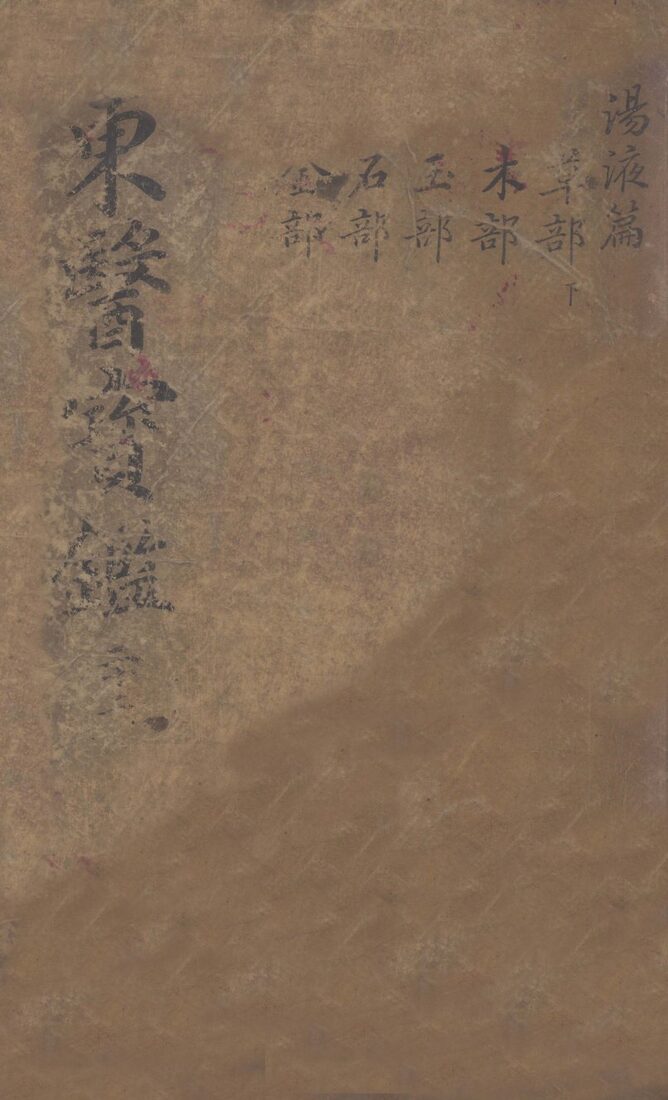 湯液篇
草部下
木部
玉部
石部
金部
東醫寶鑑